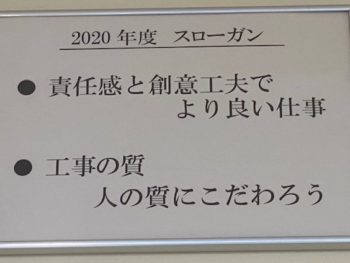 2020 年度 スローガン
● 責任感と創意工夫で
より良い仕事
● 工事の質
人の質にこだわろう